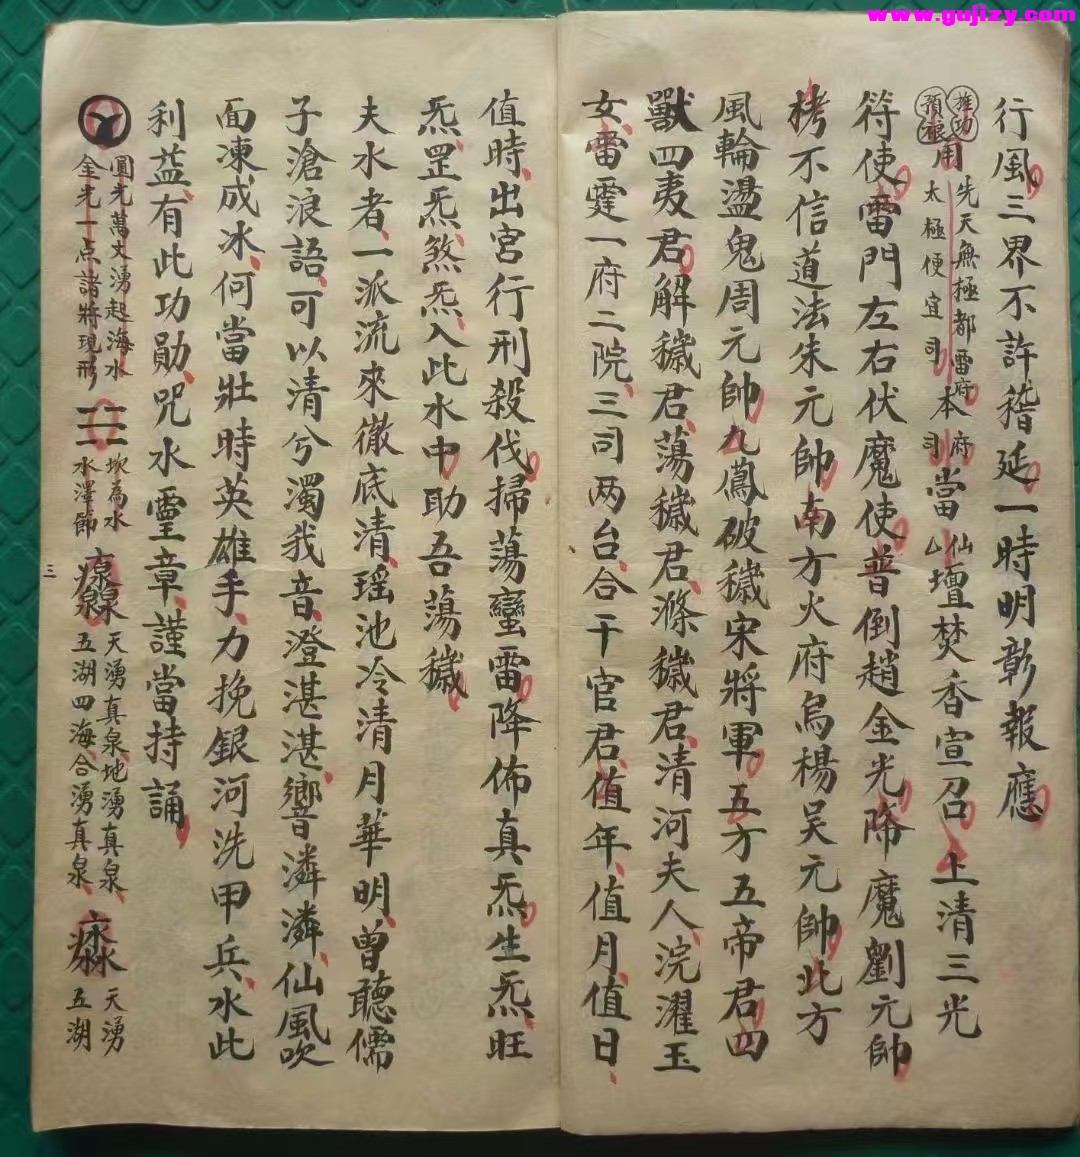 www.gujizy.com
行風三界不許稽延一時明彰報應
推功
預禳
用
先天無極都雷府
太極便宜司
本
府
司
當
仙
厶
壇焚香宣召上清三光
符使雷門左右伏魔使普倒趙金光降魔劉元帥
栲不信道法朱元帥南方火府烏楊吴元帥北方
風輪盪鬼周元帥九鳳破穢宋將軍五方五帝君四
獸四夷君解穢君蕩穢君滌穢君清河夫人浣濯玉
女雷霆一府二院三司两台合干官君值年值月值日
值時出宮行刑殺伐掃蕩蠻雷降佈真炁生炁旺
炁罡炁煞炁入此水中助吾蕩穢
夫水者一派流來徹底清瑶池冷清月華明曾聽儒
子滄浪語可以清兮濁我音澄湛湛響潾潾仙風吹
面凍成冰何當壯時英雄手力挽銀河洗甲兵水此
利益有此功勛咒水靈章謹當持誦
圓光萬丈湧起海水
金光一点諸將現形
坎為水
水澤節
天湧真泉地湧真泉
五湖四海合湧真泉
天湧
五湖
三